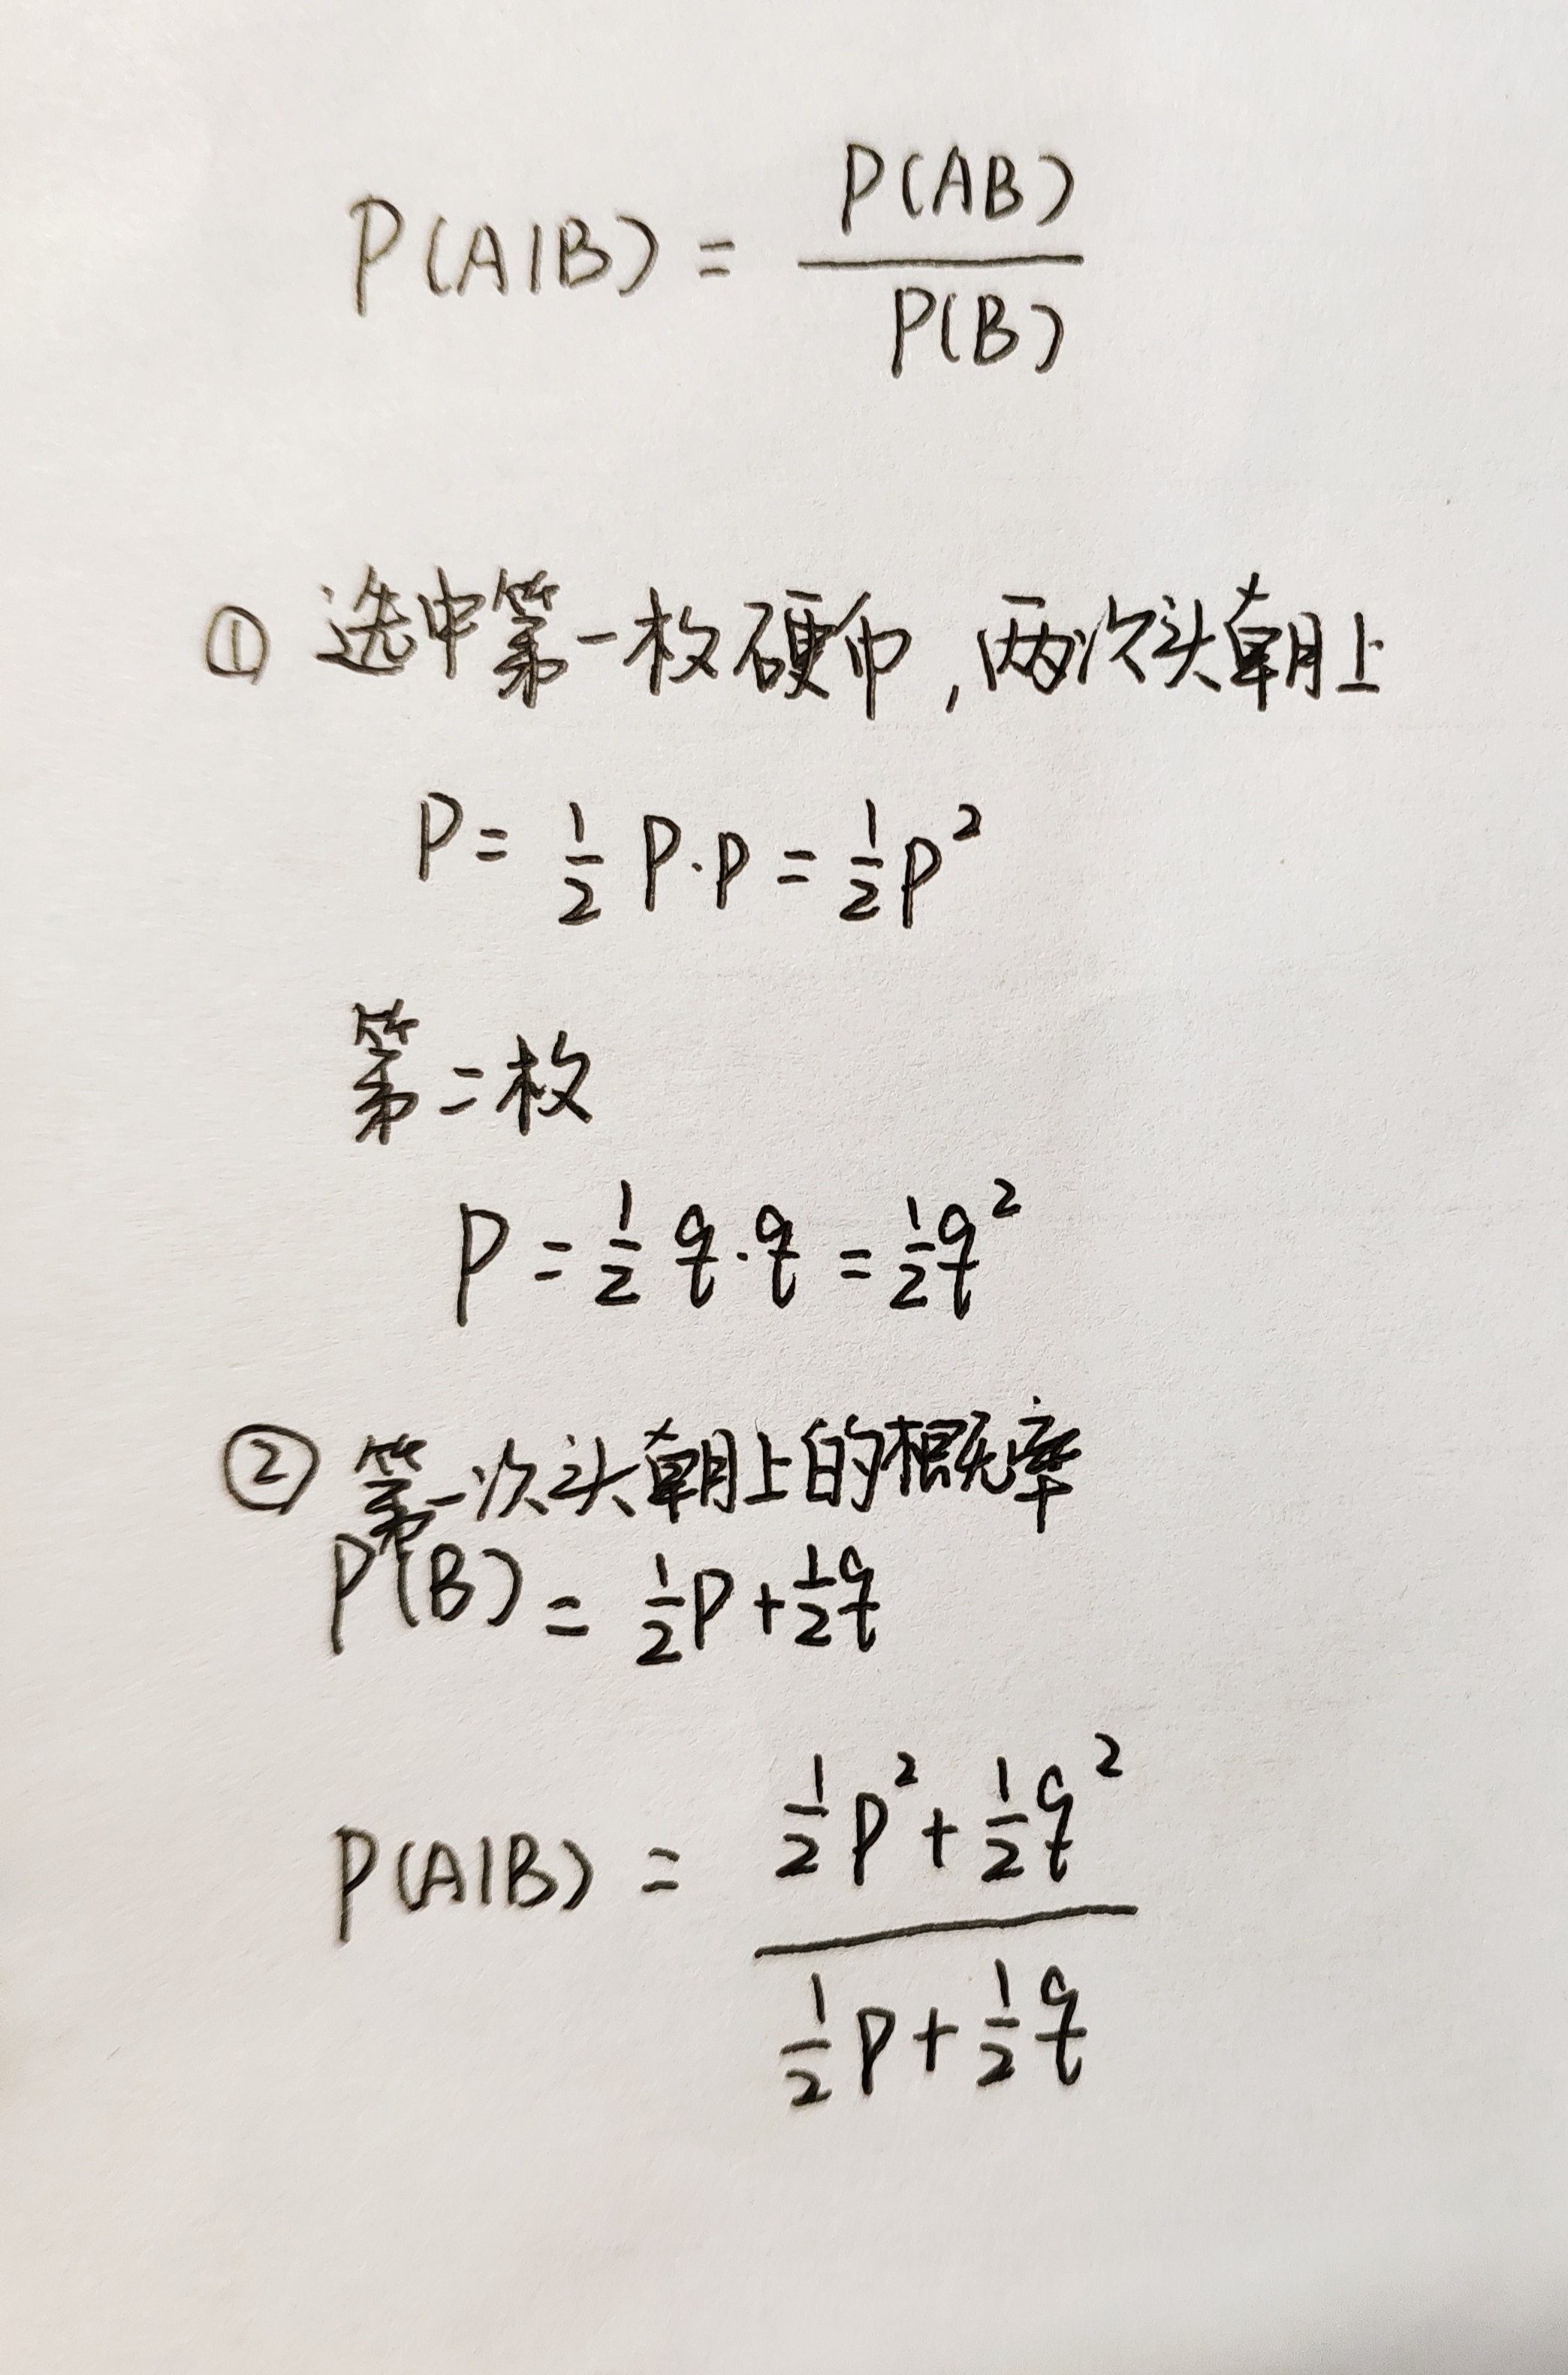 P(A|B) = P(AB) / P(B)
① 选中第一枚硬币,两次头朝上
P = 1/2 P·P = 1/2 P²
第二枚
P = 1/2 q·q = 1/2 q²
② 第一次头朝上的概率
P(B) = 1/2 P + 1/2 q
P(A|B) = (1/2 P² + 1/2 q²) / (1/2 P + 1/2 q)